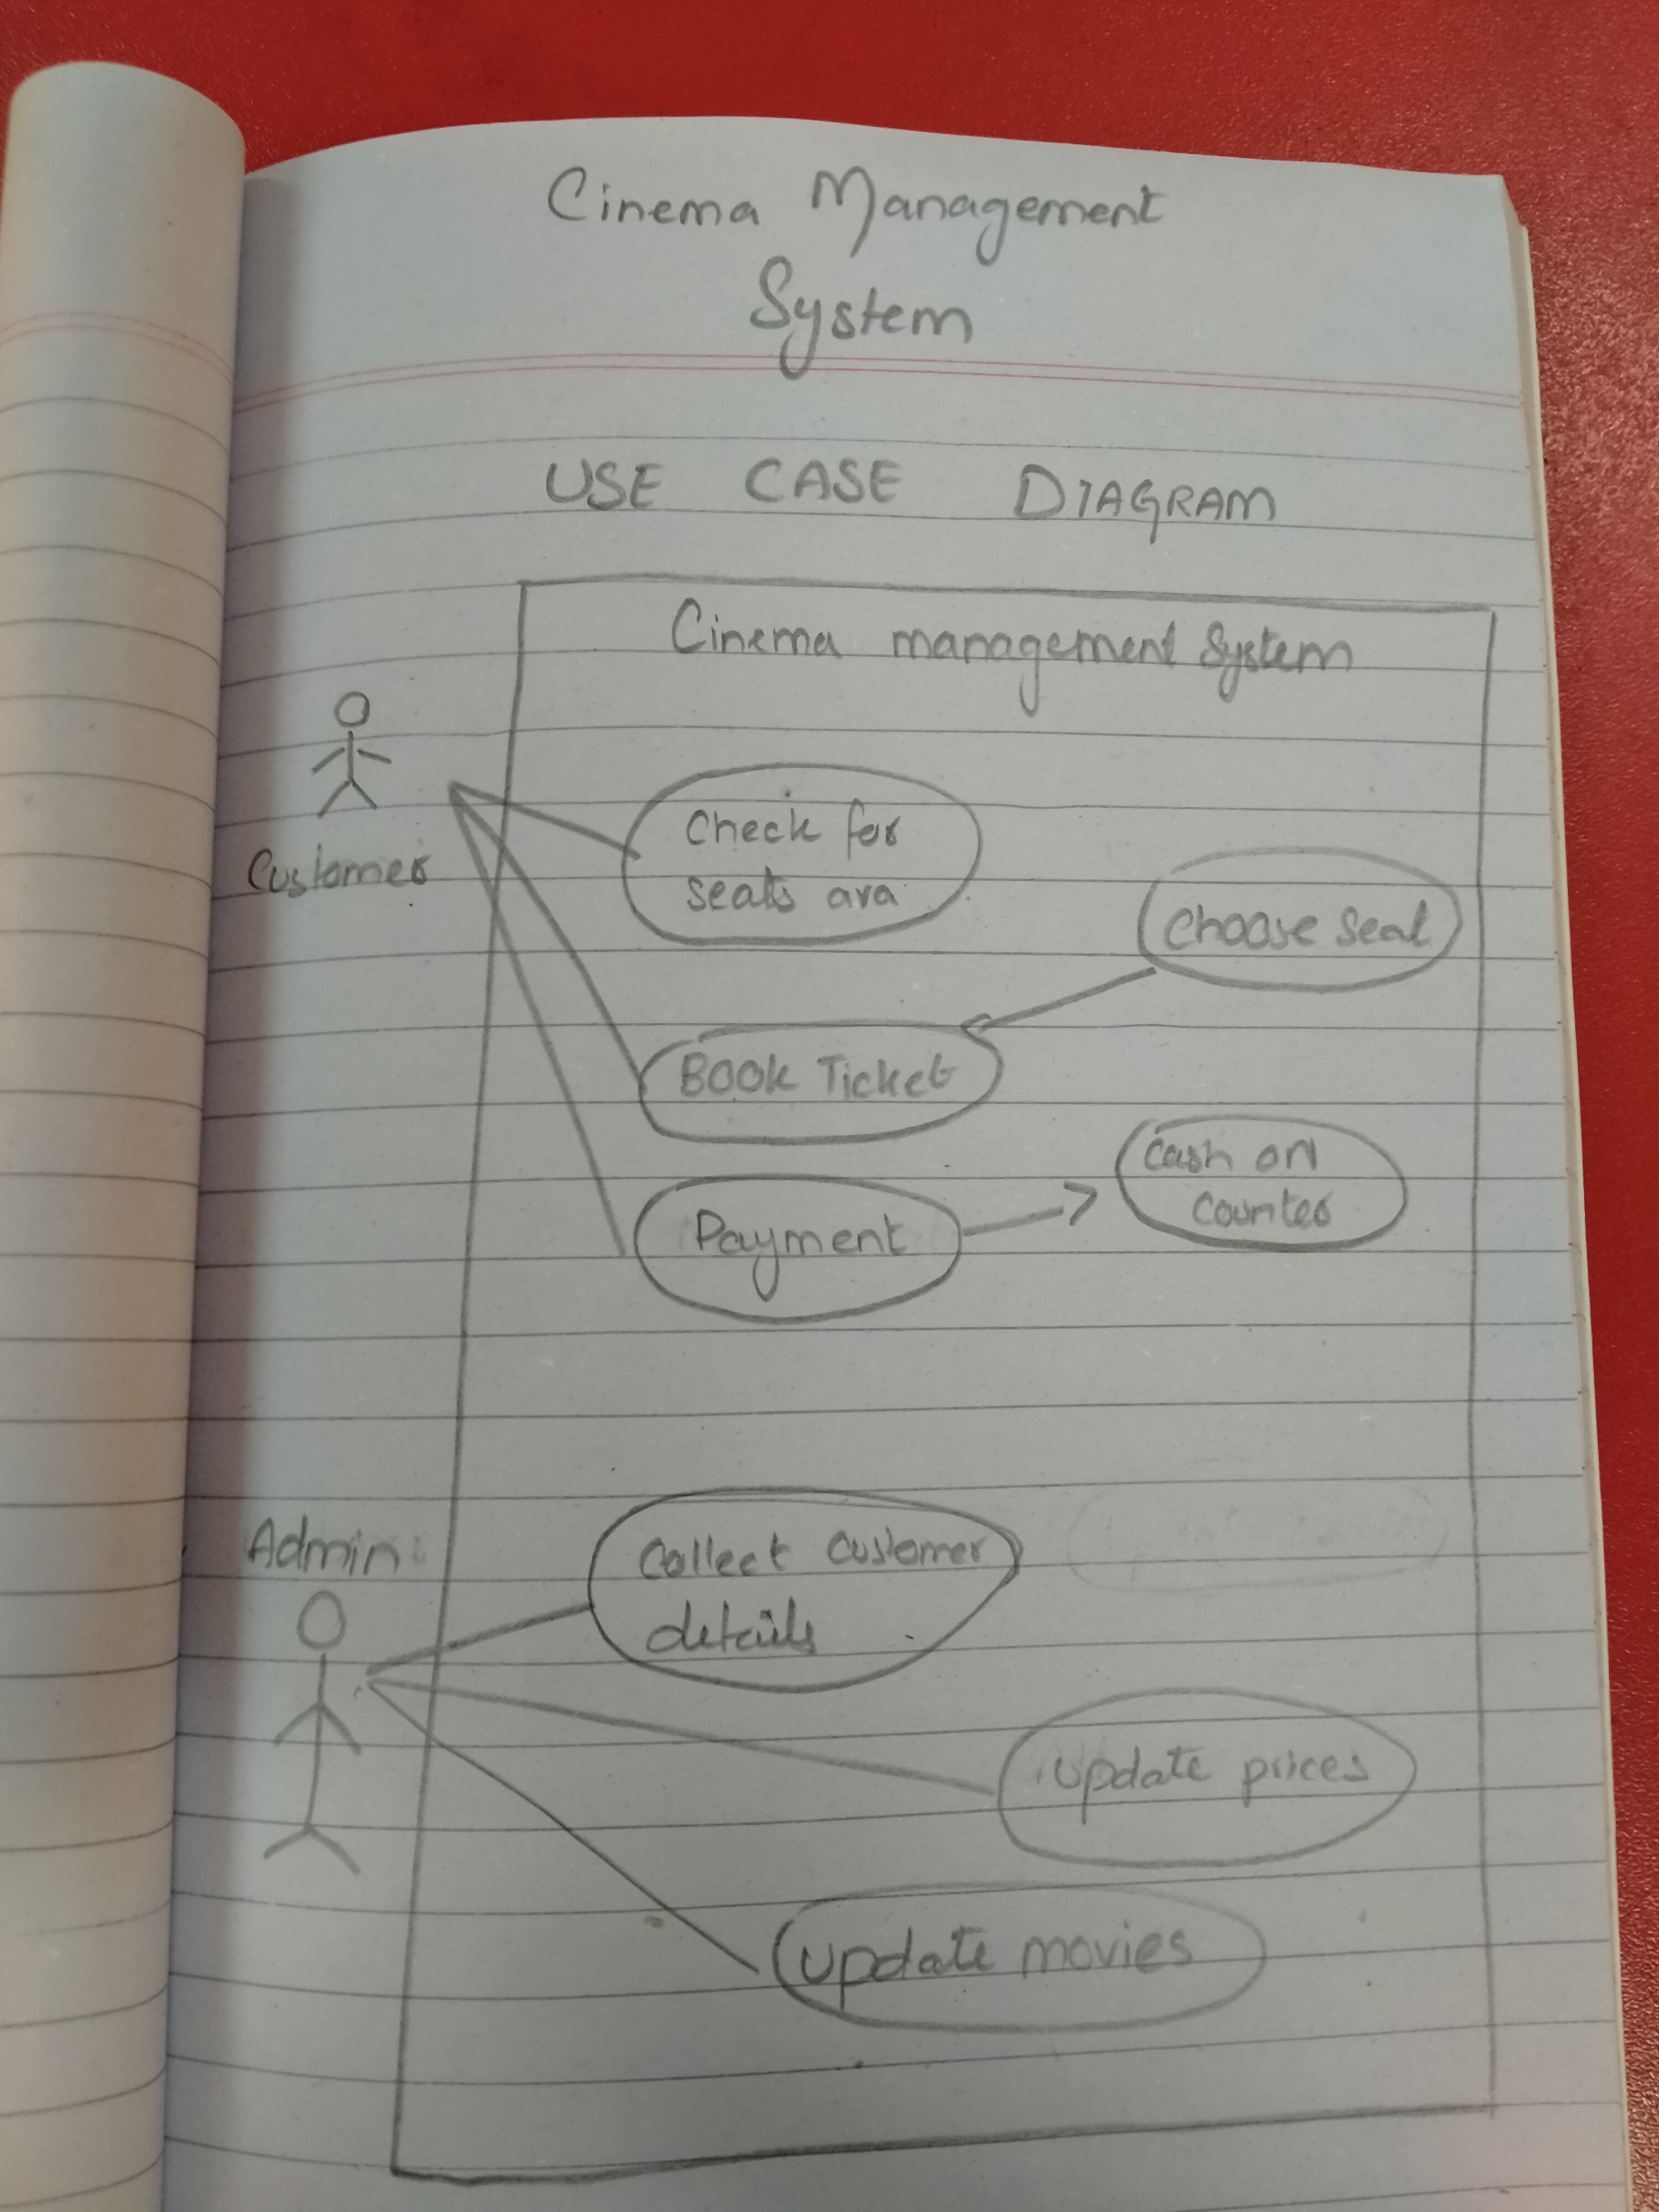 Cinema Management
System
USE CASE DIAGRAM
Cinema management System
Customer
Check for
seats ava
Choose Seat
Book Ticket
Cash on
counter
Payment
Admin
Collect customer
details
update prices
update movies